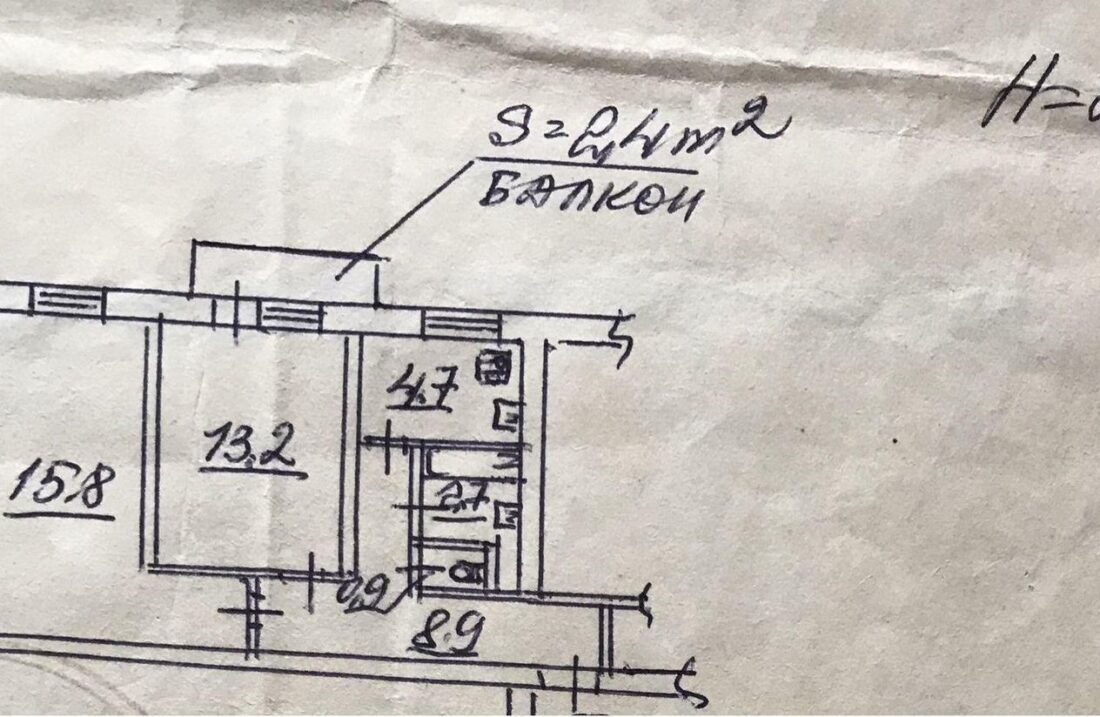 S=2,4 m²
БАЛКОН
H=
4.7
13.2
15.8
2,7
0,9
8.9